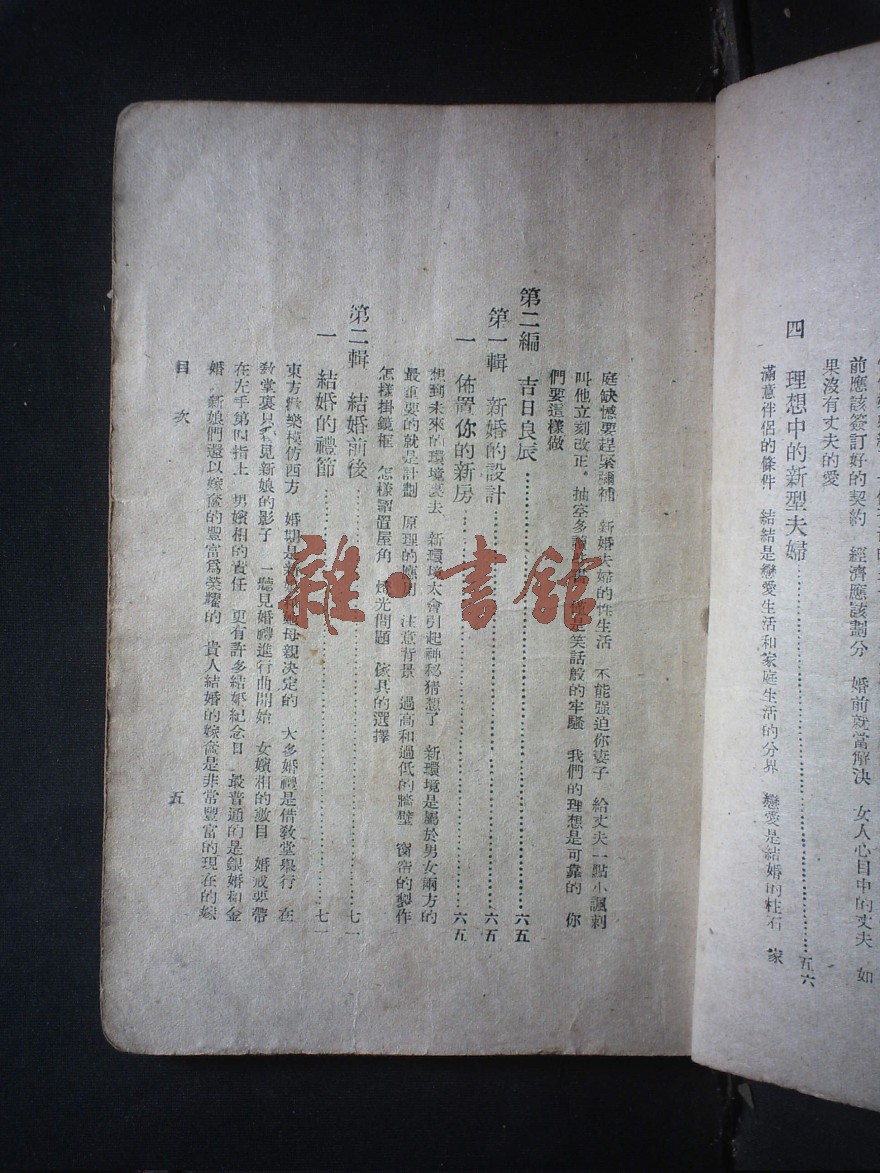 前應該簽訂好的契約　經濟應該劃分　婚前就當解決　女人心目中的丈夫　如
果沒有丈夫的愛
四　理想中的新型夫婦…………五六
滿意伴侶的條件　結結是戀愛生活和家庭生活的分界　戀愛是結婚的柱石　家
庭缺憾要趕緊彌補　新婚夫婦的性生活　不能强迫你妻子　給丈夫一點小諷刺
叫他立刻改正，抽室多　是笑話般的牢騷　我們的理想是可靠的　你
們要這樣做
第二編　吉日良辰…………六五
第一輯　新婚的設計…………六五
一　佈置你的新房…………六五
想到未來的環境裏去　新環境太會引起神秘猜想了　新環境是屬於男女兩方的
最重要的就是計劃　原理的應用　注意背景　過高和過低的牆壁　窗帘的製作
怎樣掛鏡框　怎樣佈置屋角　燈光問題　傢具的選擇
第二輯　結婚前後…………七一
一　結婚的禮節…………七一
東方音樂模仿西方　婚期是新娘和她母親決定的　大多婚禮是借教堂舉行　在
教堂裏只看見新娘的影子　一聽見婚禮進行曲開始　女嬪相的數目　婚戒要帶
在左手第四指上　男嬪相的責任　更有許多結婚紀念日　最普通的是銀婚和金
婚　新娘們還以嫁奩的豐富爲榮耀的　貴人結婚的嫁奩是非常豐富的現在的嫁
目次　五
雜·書館